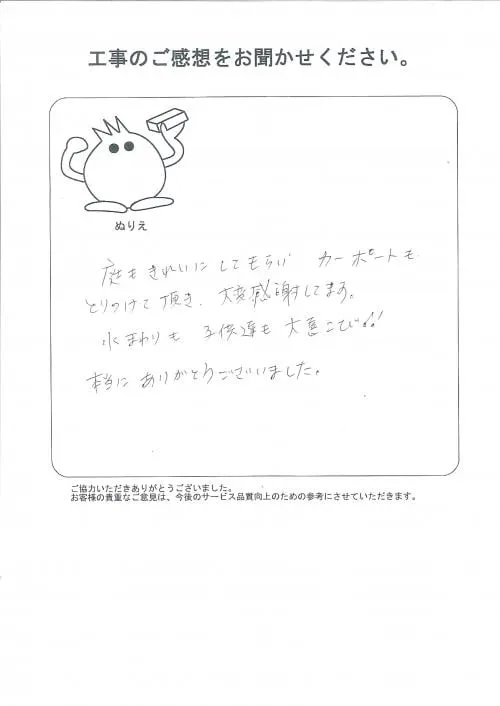 工事のご感想をお聞かせください。
ぬりえ
庭もきれいにしてもらい カーポートも
とりつけて頂き、大変感謝してます。
水まわりも 子供達も大喜こび!!
本当にありがとうございました。
ご協力いただきありがとうございました。
お客様の貴重なご意見は、今後のサービス品質向上のための参考にさせていただきます。